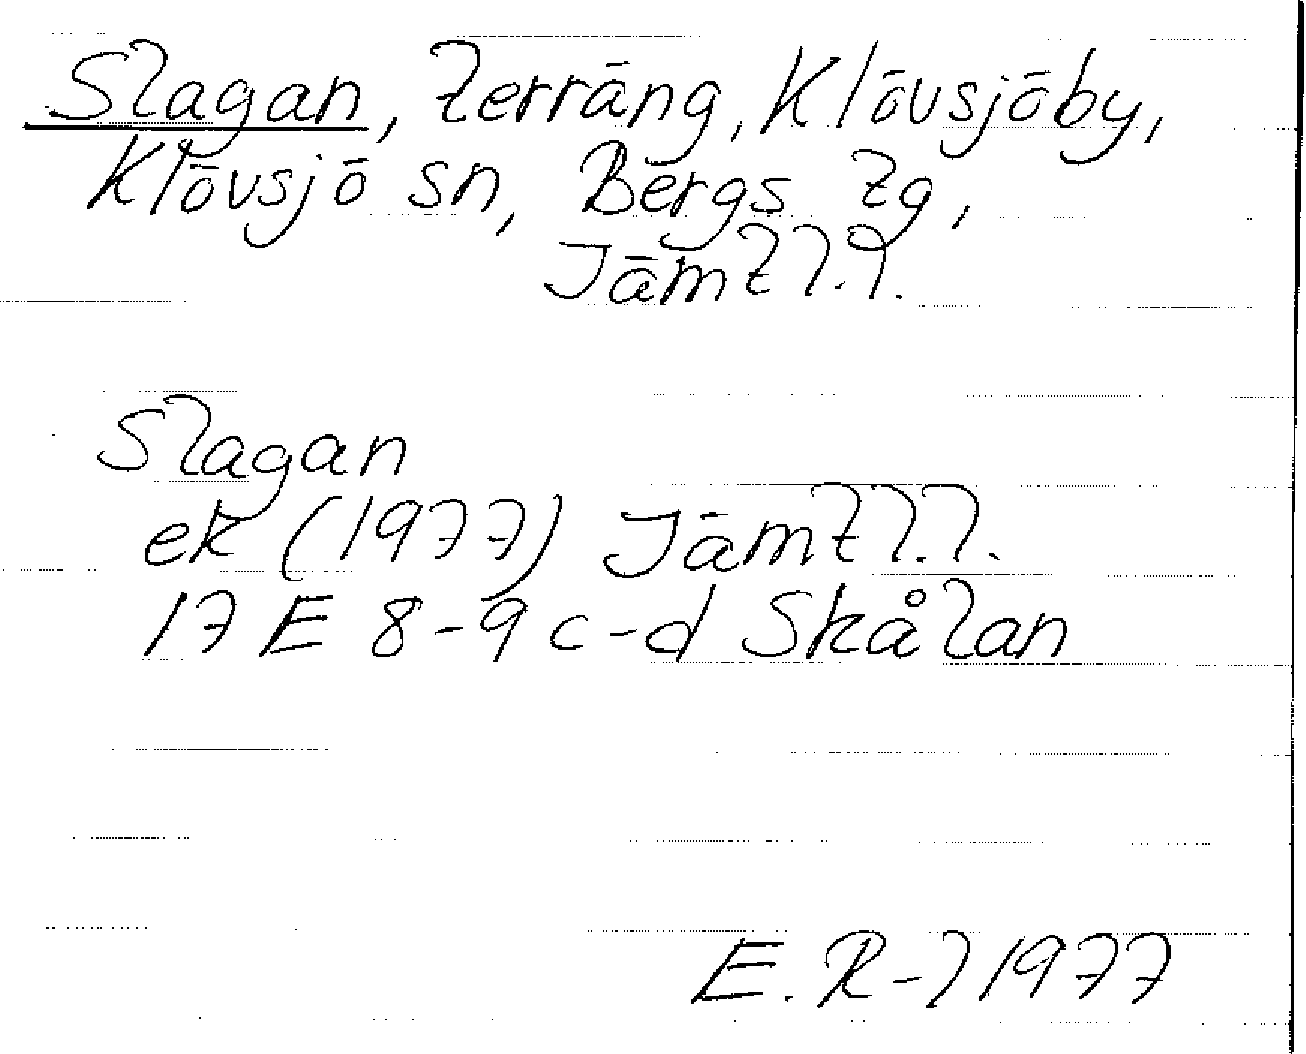 Slagan, terräng, Klövsjöby,
Klövsjö sn, Bergs tg,
Jämtl.l.
Slagan
ek (1977) Jämtl.l.
17 E 8-9 c-d Skålan
E. R-l 1977